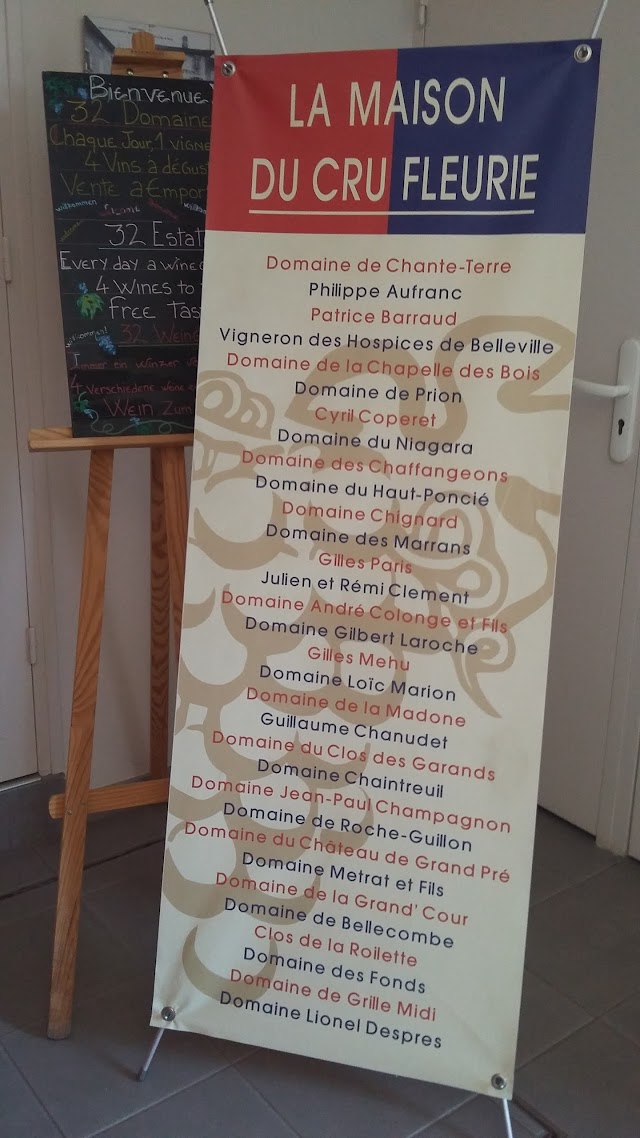 Bienvenue
32 Domaine
Chaque Jour, 1 vigne
4 Vins à dégus
Vente à Empor
willkommen
32 Estat
Every day a wine
4 Wines to
Free Tas
willkommen!
32 Wein
Immer ein Winzer
4 verschiedene
Wein Zum
LA MAISON
DU CRU FLEURIE
Domaine de Chante-Terre
Philippe Aufranc
Patrice Barraud
Vigneron des Hospices de Belleville
Domaine de la Chapelle des Bois
Domaine de Prion
Cyril Coperet
Domaine du Niagara
Domaine des Chaffangeons
Domaine du Haut-Poncié
Domaine Chignard
Domaine des Marrans
Gilles Paris
Julien et Rémi Clement
Domaine André Colonge et Fils
Domaine Gilbert Laroche
Gilles Mehu
Domaine Loïc Marion
Domaine de la Madone
Guillaume Chanudet
Domaine du Clos des Garands
Domaine Chaintreuil
Domaine Jean-Paul Champagnon
Domaine de Roche-Guillon
Domaine du Château de Grand Pré
Domaine Metrat et Fils
Domaine de la Grand' Cour
Domaine de Bellecombe
Clos de la Roilette
Domaine des Fonds
Domaine de Grille Midi
Domaine Lionel Despres